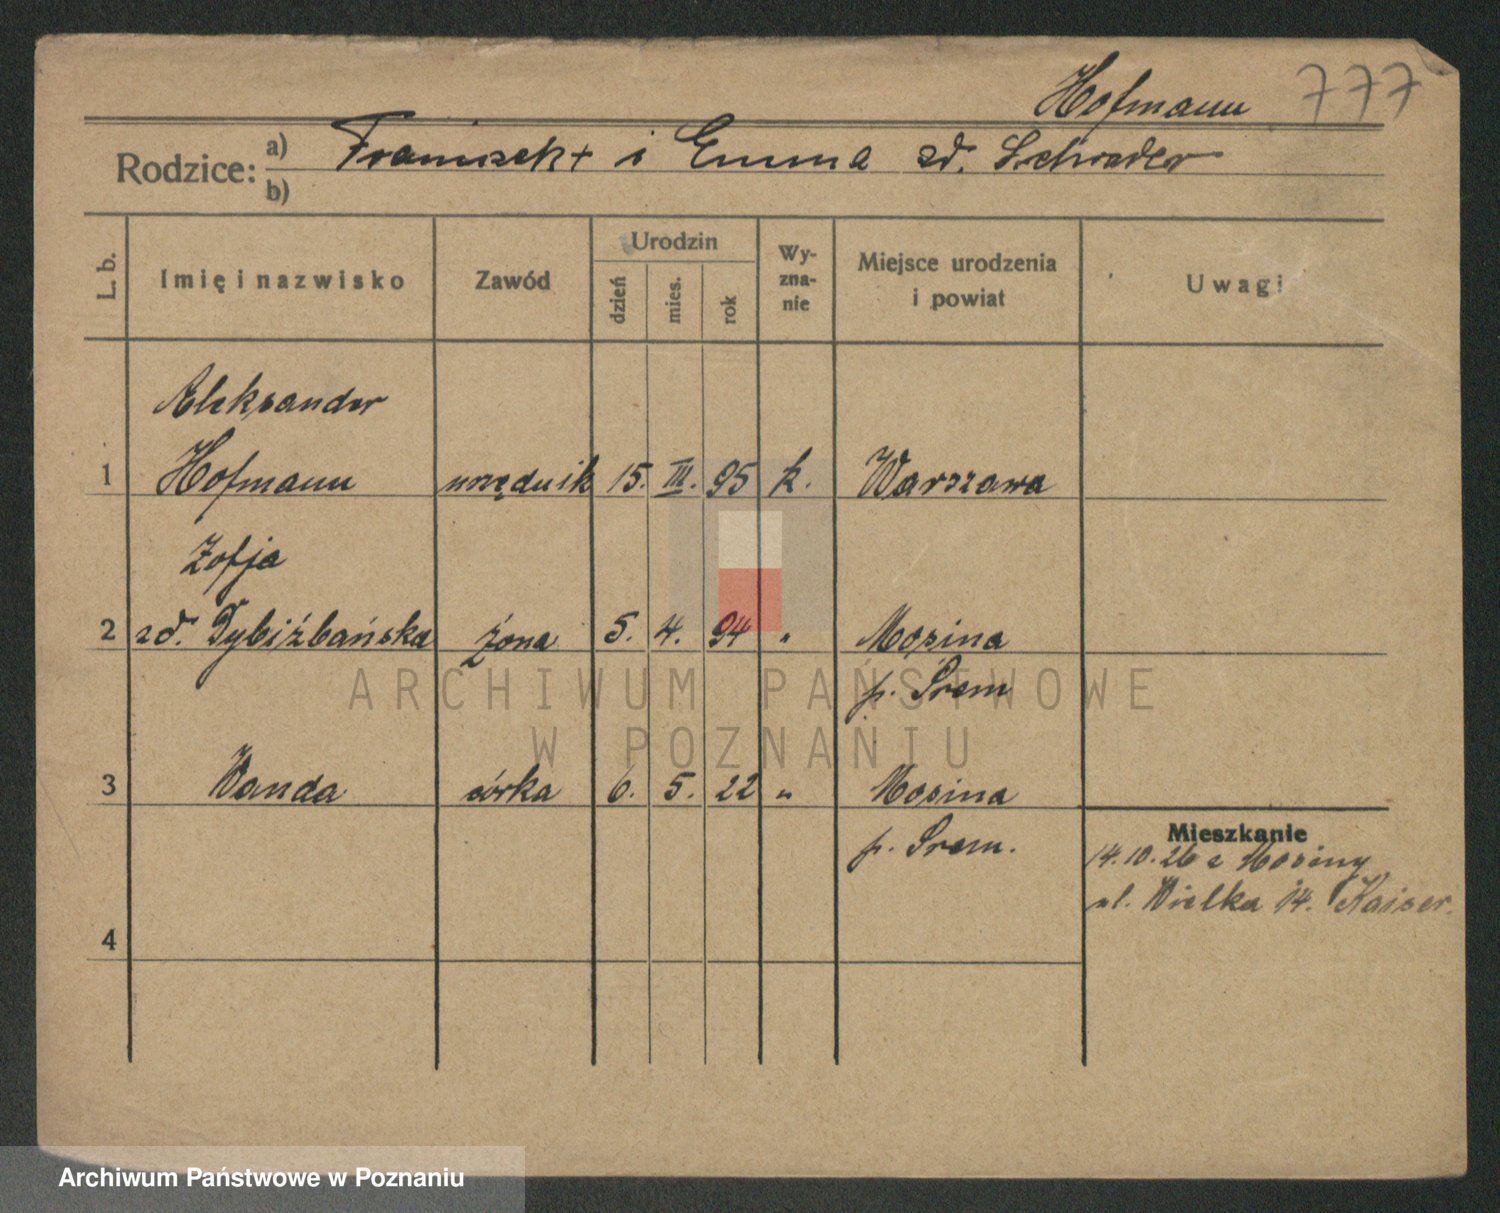 Hofmann 777
Rodzice: a) Franciszek + i Emma zd. Schrader
b)
L. b. Imię i nazwisko Zawód Urodzin dzień mies. rok Wy-zna-nie Miejsce urodzenia i powiat Uwagi
Aleksander
1 Hofmann urzędnik 15. III. 95 k. Warszawa
Zofja
2 zd. Dybiźbańska żona 5. 4. 94 " Mosina
p. Śrem
3 Wanda córka 6. 5. 22 " Mosina
p. Śrem.
Mieszkanie
14.10.26 z Mosiny
ul. Wielka 14. Kaiser.
4
ARCHIWUM PAŃSTWOWE
W POZNANIU
Archiwum Państwowe w Poznaniu